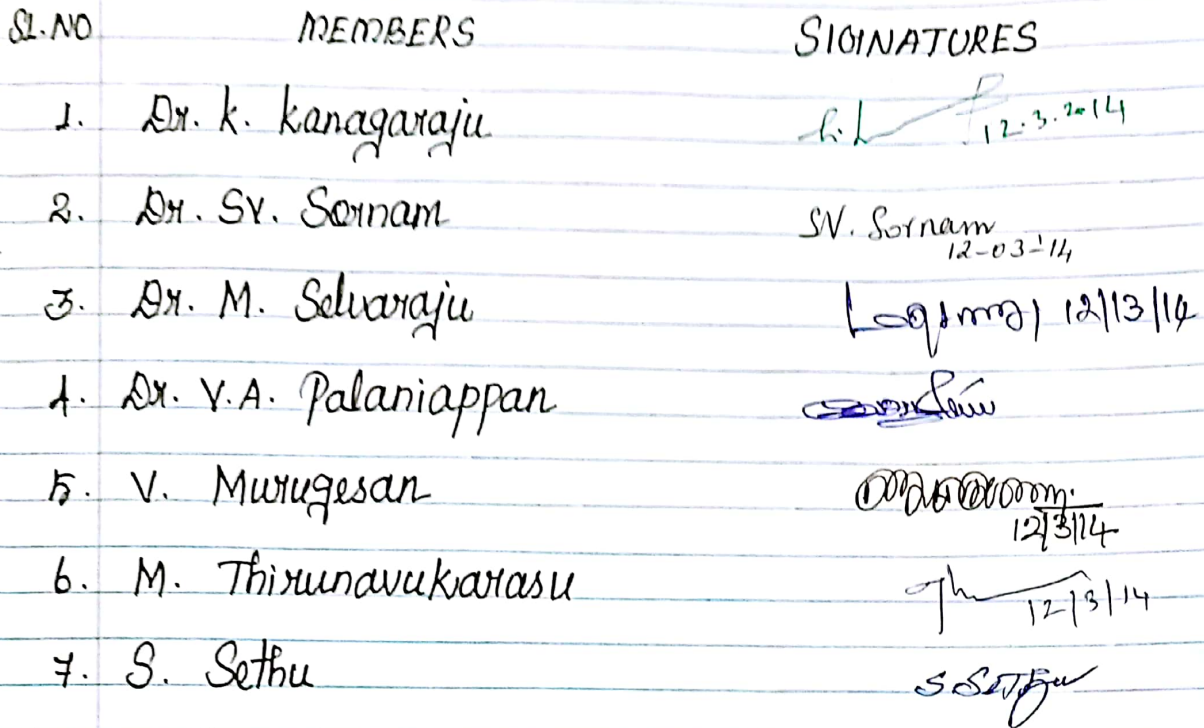 SL.NO MEMBERS SIGNATURES
1. Dr. K. Kanagaraju 12.3.2014
2. Dr. SV. Sornam SV. Sornam
12-03-'14
3. Dr. M. Selvaraju 12/13/14
4. Dr. V.A. Palaniappan
5. V. Murugesan
12/3/14
6. M. Thirunavukarasu 12/3/14
7. S. Sethu